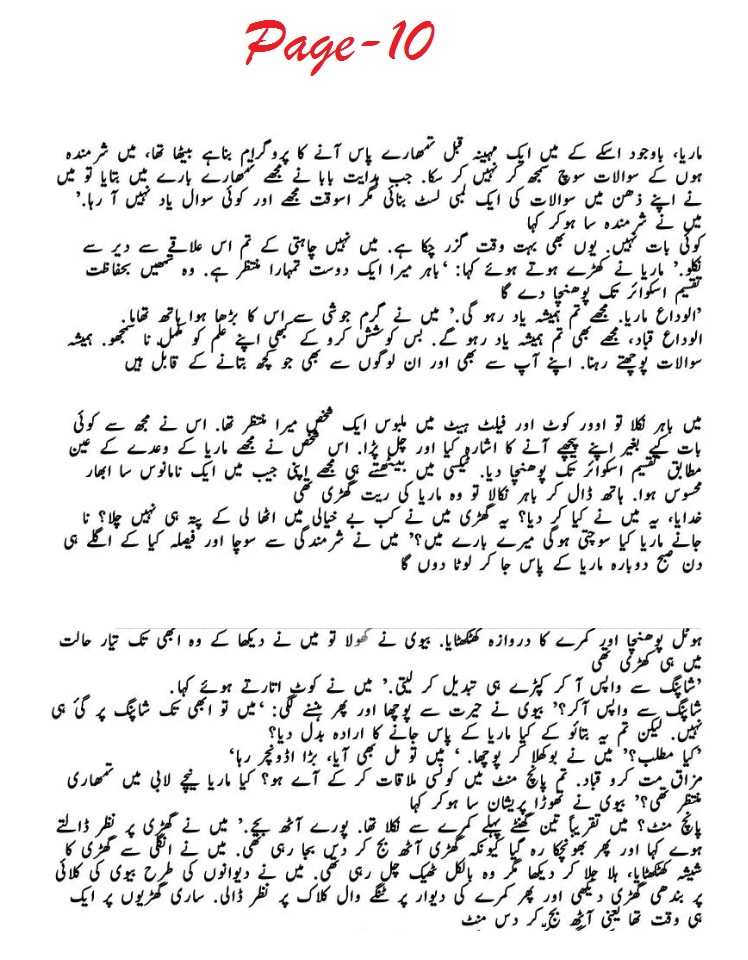 Page-10
ماریا، باوجود اسکے کے میں ایک مہینہ قبل تمھارے پاس آنے کا پروگرام بناہے بیٹھا تھا، میں شرمندہ
ہوں کے سوالات سوچ سمجھ کر نہیں کر سکا۔ جب ہدایت بابا نے مجھے تمھارے بارے میں بتایا تو میں
نے اپنے ذھن میں سوالات کی ایک لمبی لسٹ بنائی مگر اسوقت مجھے اور کوئی سوال یاد نہیں آ رہا.'
میں نے شرمندہ سا ہوکر کہا
کوئی بات نہیں. یوں بھی بہت وقت گزر چکا ہے. میں نہیں چاہتی کے تم اس علاقے سے دیر سے
نکلو.' ماریا نے کھڑے ہوتے ہوئے کہا: 'باہر میرا ایک دوست تمہارا منتظر ہے. وہ تمھیں بحفاظت
تقسیم اسکوائر تک پوھنچا دے گا
'الوداع ماریا. مجھے تم ہمیشہ یاد رہو گی.' میں نے گرم جوشی سے اس کا بڑھا ہوا ہاتھ تھاما.
الوداع قباد، مجھے بھی تم ہمیشہ یاد رہو گے. بس کوشش کرو کے کبھی اپنے علم کو مکمل نا سمجھو. ہمیشہ
سوالات پوچھتے رہنا. اپنے آپ سے بھی اور ان لوگوں سے بھی جو کچھ بتانے کے قابل ہیں
میں باہر نکلا تو اوور کوٹ اور فیلٹ ہیٹ میں ملبوس ایک شخص میرا منتظر تھا. اس نے مجھ سے کوئی
بات کیے بغیر اپنے پیچھے آنے کا اشارہ کیا اور چل پڑا. اس شخص نے مجھے ماریا کے وعدے کے عین
مطابق تقسیم اسکوائر تک پوھنچا دیا. ٹیکسی میں بیٹھتے ہی مجھے اپنی جیب میں ایک نامانوس سا ابھار
محسوس ہوا. ہاتھ ڈال کر باہر نکالا تو وہ ماریا کی ریت گھڑی تھی
خدایا، یہ میں نے کیا کر دیا؟ یہ گھڑی میں نے کب بے خیالی میں اٹھا لی کے پتہ ہی نہیں چلا؟ نا
جانے ماریا کیا سوچتی ہوگی میرے بارے میں؟' میں نے شرمندگی سے سوچا اور فیصلہ کیا کے اگلے ہی
دن صبح دوبارہ ماریا کے پاس جا کر لوٹا دوں گا
ہوٹل پوھنچا اور کمرے کا دروازہ کھٹکھٹایا. بیوی نے کھولا تو میں نے دیکھا کے وہ ابھی تک تیار حالت
میں ہی کھڑی تھی
'شاپنگ سے واپس آ کر کپڑے ہی تبدیل کر لیتی.' میں نے کوٹ اتارتے ہوئے کہا.
شاپنگ سے واپس آکر؟' بیوی نے حیرت سے پوچھا اور پھر ہنسنے لگی: 'میں تو ابھی تک شاپنگ پر گئی ہی
نہیں. لیکن تم یہ بتائو کے کیا ماریا کے پاس جانے کا ارادہ بدل دیا؟
'کیا مطلب؟' میں نے بوکھلا کر پوچھا. ' میں تو مل بھی آیا، بڑا اڈونچر رہا'
مزاق مت کرو قباد. تم پانچ منٹ میں کونسی ملاقات کر کے آے ہو؟ کیا ماریا نیچے لابی میں تمھاری
منتظر تھی؟' بیوی نے تھوڑا پریشان سا ہوکر کہا
پانچ منٹ؟ میں تقریباً تین گھنٹے پہلے کمرے سے نکلا تھا. پورے آٹھ بجے.' میں نے گھڑی پر نظر ڈالتے
ہوے کہا اور پھر بھونچکا رہ گیا کیونکہ گھڑی آٹھ بج کر دس بجا رہی تھی. میں نے انگلی سے گھڑی کا
شیشہ کھٹکھٹایا، ہلا جلا کر دیکھا مگر وہ بالکل ٹھیک چل رہی تھی. میں نے دیوانوں کی طرح بیوی کی کلائی
پر بندھی گھڑی دیکھی اور پھر کمرے کی دیوار پر ٹنگے وال کلاک پر نظر ڈالی. ساری گھڑیوں پر ایک
ہی وقت تھا یعنی آٹھ بج کر دس منٹ